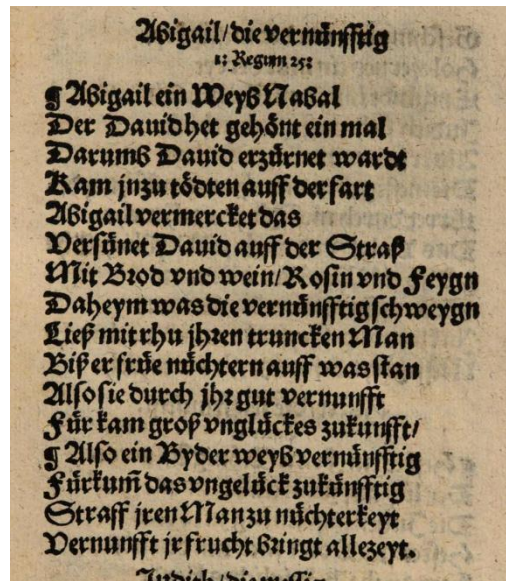 Abigail/die vernünfftig
1: Regum 25:
¶ Abigail ein Weyb Nabal
Der Dauid het gehönt ein mal
Darumb Dauid erzürnet wardt
Kam jnzu tödten auff der fart
Abigail vermercket das
Versünet Dauid auff der Straß
Mit Brod vnd wein/Rosin vnd Feygn
Daheym was die vernünfftig schweygn
Ließ mit rhu jhren truncken Man
Biß er früe nüchtern auff was stan
Also sie durch jhr gut vernunfft
Für kam groß vnglückes zukunfft/
¶ Also ein Byder weyb vernünfftig
Fürkum̃ das vngelück zukünfftig
Straff jren Man zu nüchterkeyt
Vernunfft jr frucht bringt allezeyt.
Judich/die